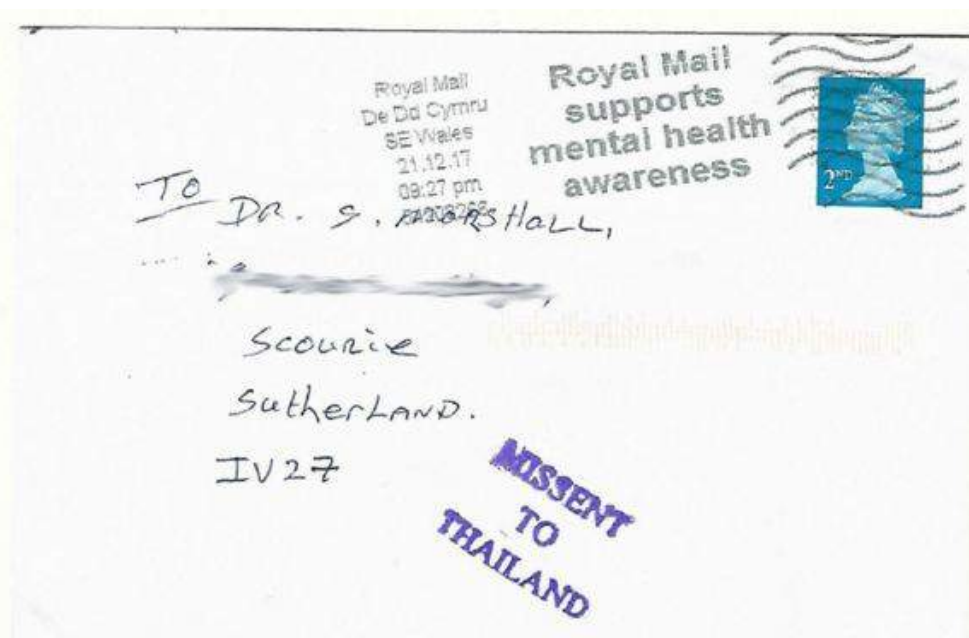 Royal Mail
De Dd Cymru
SE Wales
21.12.17
09:27 pm
Royal Mail
supports
mental health
awareness
2ND
TO
DR. S. MARSHALL,
Scourie
Sutherland.
IV27
MISSENT
TO
THAILAND